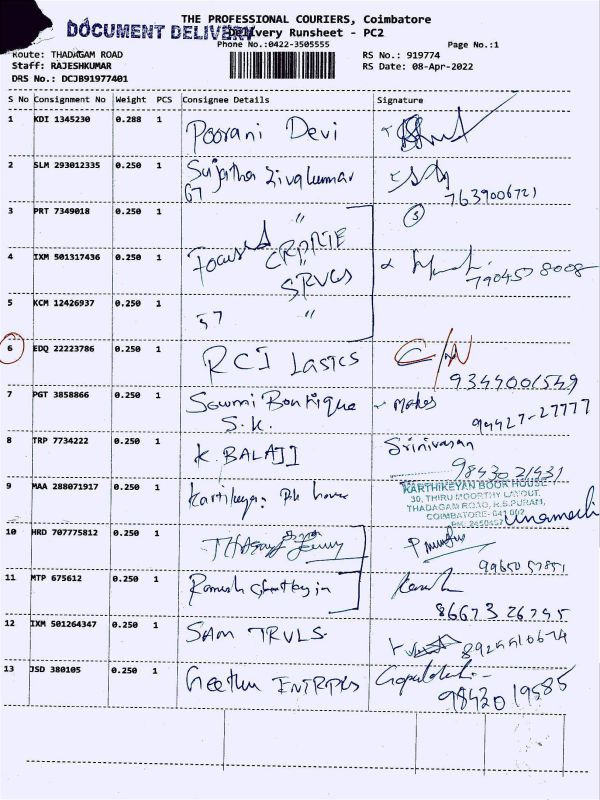 THE PROFESSIONAL COURIERS, Coimbatore
DOCUMENT DELIVERY
Delivery Runsheet - PC2
Phone No.:0422-3505555
Page No.:1
Route: THADAGAM ROAD
RS No.: 919774
Staff: RAJESHKUMAR
RS Date: 08-Apr-2022
DRS No.: DCJB91977401
S No Consignment No Weight PCS Consignee Details Signature
1 KDI 1345230 0.288 1 Poorani Devi
2 SLM 293012335 0.250 1 Sujatha Sivakumar
67 7639006721
3 PRT 7349018 0.250 1 " 3
4 IXM 501317436 0.250 1 Focused CRPRTE
SRVCS 790457 8008
5 KCM 12426937 0.250 1 57 "
6 EDQ 22223786 0.250 1 RCI Lasics C/N
9344001549
7 PGT 3858866 0.250 1 Sowmi Bontique
S.K. 99427-27777
8 TRP 7734222 0.250 1 K. BALAJI Srinivasan
9843021431
9 MAA 288071917 0.250 1 Kartikeyan
KARTHIKEYAN BOOK HOUSE
30, THIRU MOORTHY LAYOUT,
THADAGAM ROAD, R.S.PURAM,
COIMBATORE- 641 002
10 HRD 707775812 0.250 1
11 MTP 675612 0.250 1 Ramesh
86673 26745
12 IXM 501264347 0.250 1 SAM TRVLS
13 JSD 380105 0.250 1 Geetha ENTRPRS
98430 19585